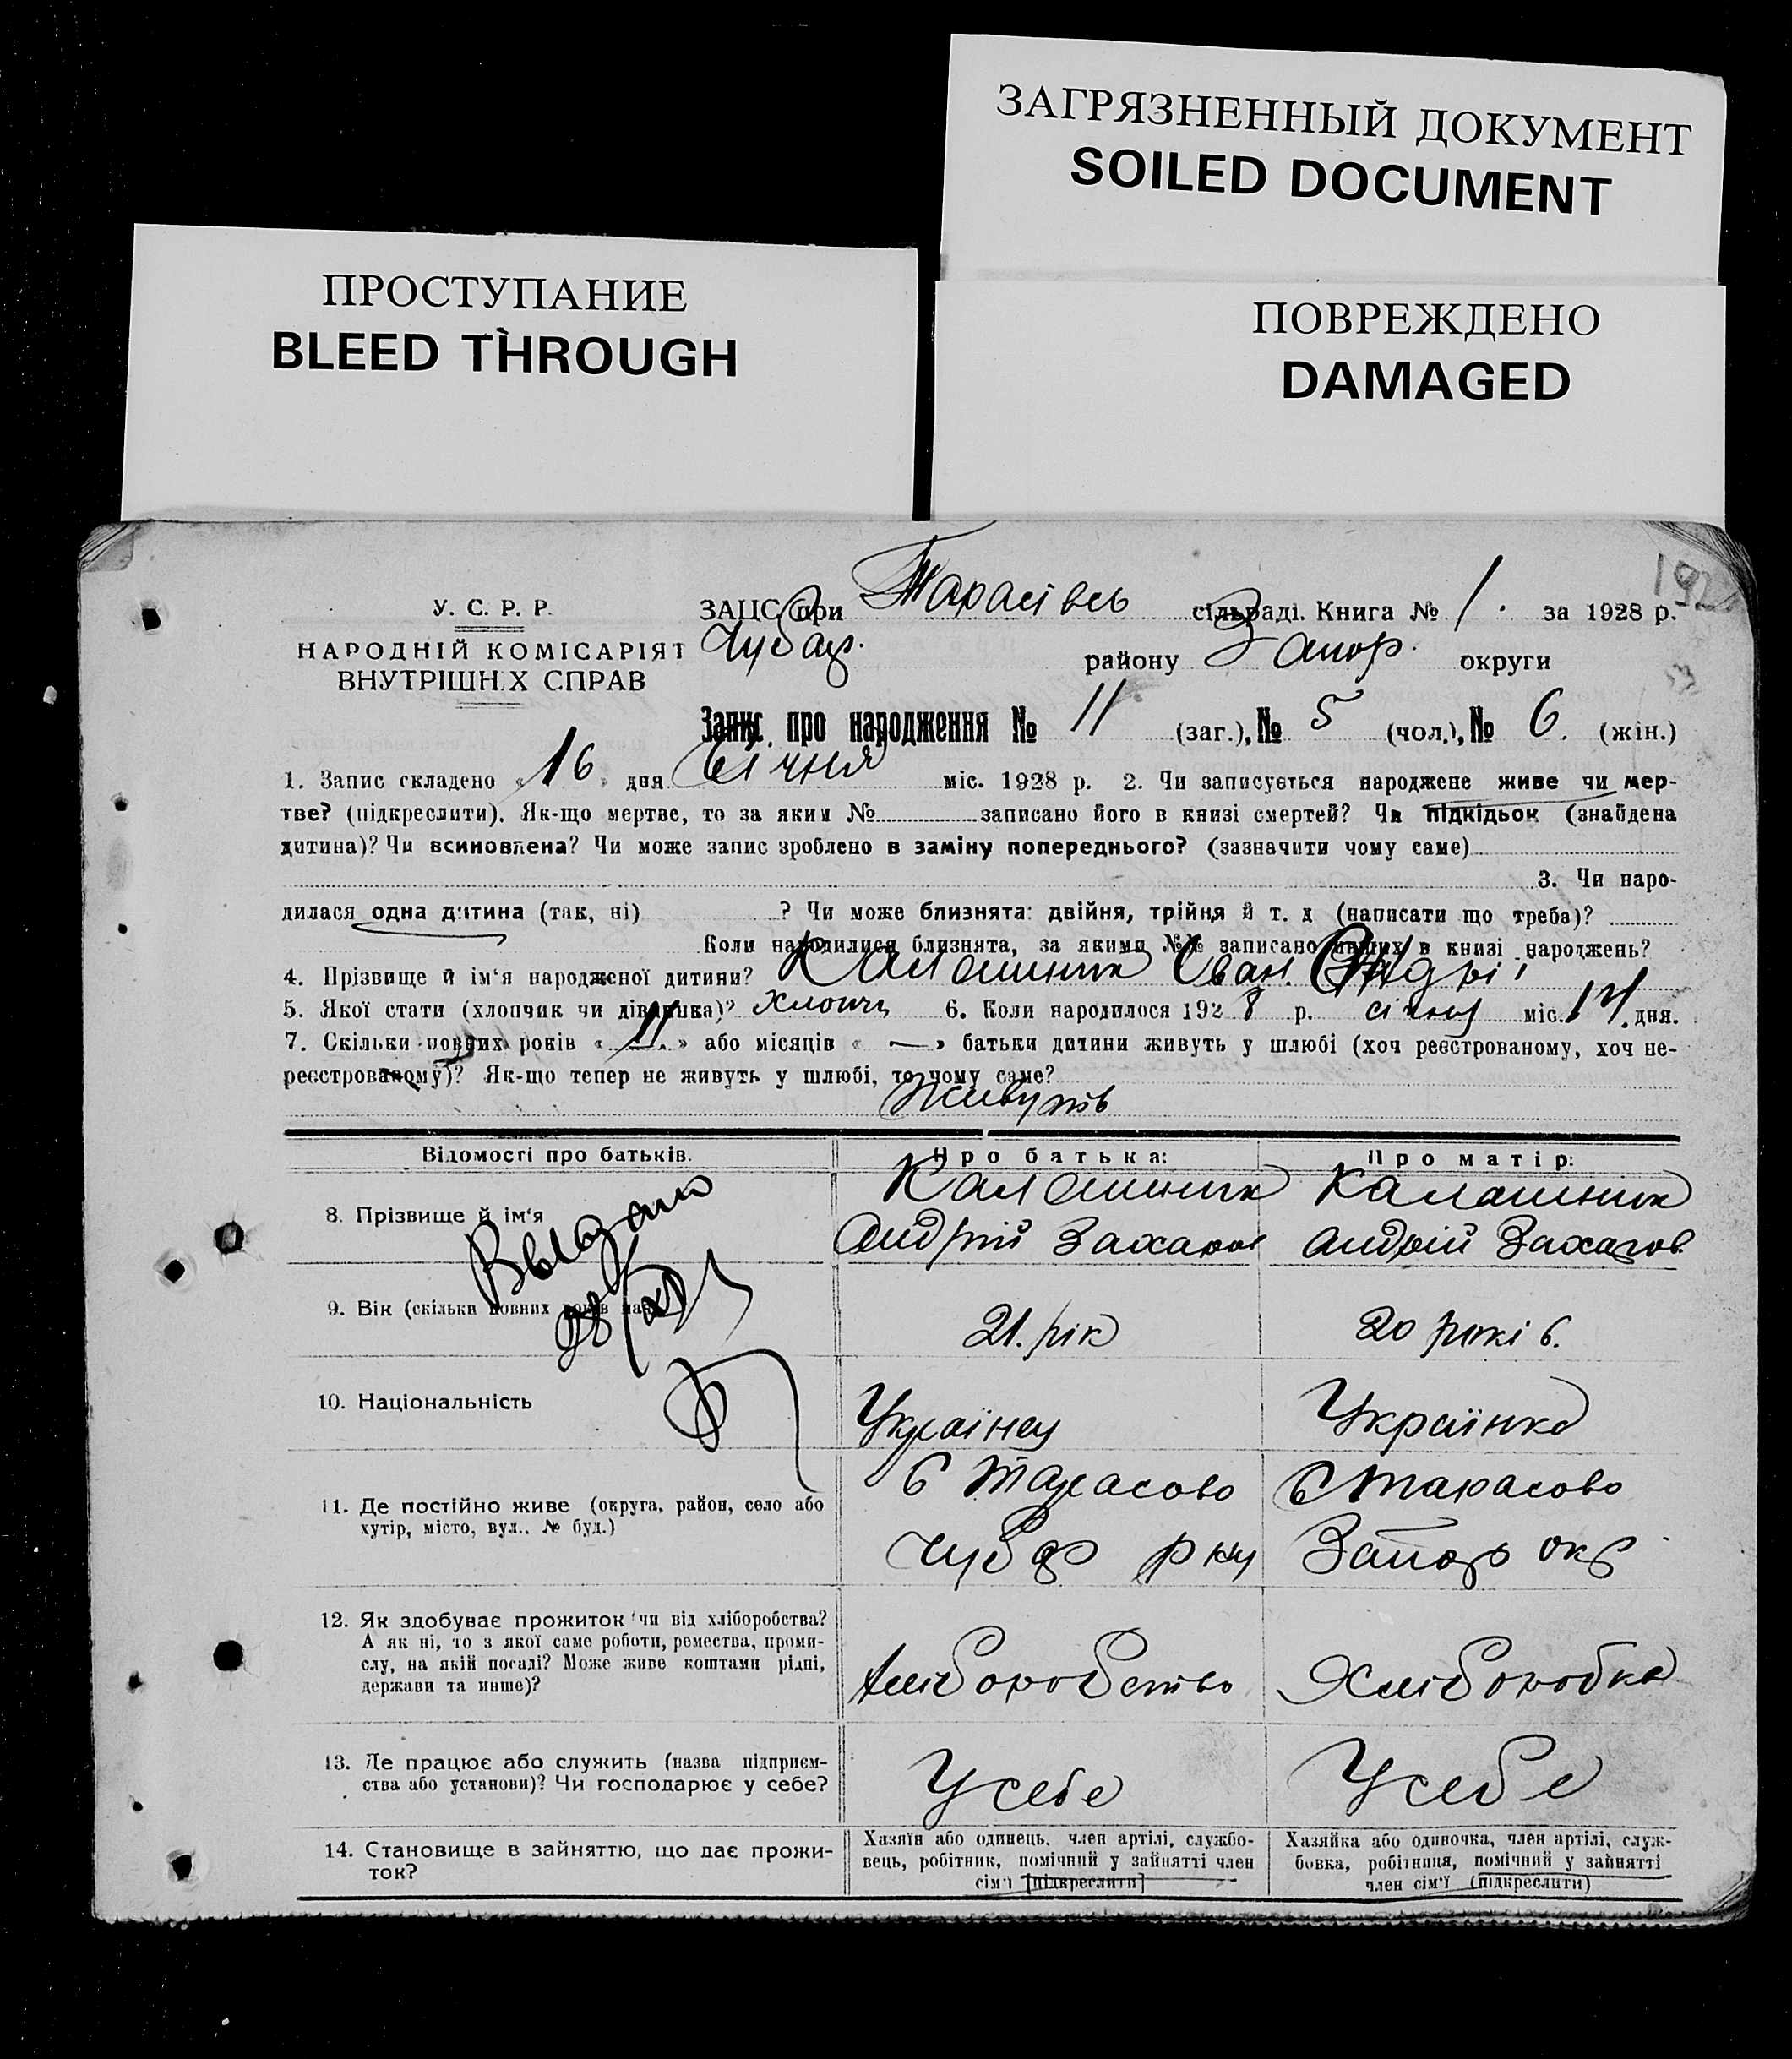 ЗАГРЯЗНЕННЫЙ ДОКУМЕНТ
SOILED DOCUMENT
ПРОСТУПАНИЕ
BLEED THROUGH
ПОВРЕЖДЕНО
DAMAGED
192
У. С. Р. Р.
НАРОДНІЙ КОМІСАРІЯТ
ВНУТРІШНІХ СПРАВ
ЗАЦС при Тарасівсь сільраді. Книга № 1. за 1928 р.
Чубар. району Запор. округи
Запис про народження № 11 (заг.), № 5 (чол.), № 6. (жін.)
1. Запис складено « 16 » дня Січня міс. 1928 р. 2. Чи записується народжене живе чи мер-
тве? (підкреслити). Як-що мертве, то за яким № записано його в книзі смертей? Чи підкідьок (знайдена
дитина)? Чи всиновлена? Чи може запис зроблено в заміну попереднього? (зазначити чому саме)
3. Чи наро-
дилася одна дитина (так, ні) ? Чи може близнята: двійня, трійня й т. д (написати що треба)?
Коли народилися близнята, за якими №№ записано инших в книзі народжень?
4. Прізвище й ім‘я народженої дитини? Калашник Іван Андрі
5. Якої стати (хлопчик чи дівчинка)? хлопч 6. Коли народилося 1928 р. січня міс. 14 дня.
7. Скільки повних років « » або місяців « — » батьки дитини живуть у шлюбі (хоч реєстрованому, хоч не-
реєстрованому)? Як-що тепер не живуть у шлюбі, то чому саме?
Живуть
Відомості про батьків.
Про батька:
Про матір:
8. Прізвище й ім‘я
Калашник
Андрій Захаров
Калашник
Андрій Захаров
Выдано
9. Вік (скільки повних років має)
21. рік
20 років.
10. Національність
Українец
Українка
11. Де постійно живе (округа, район, село або
хутір, місто, вул.. № буд.)
С Тарасово
Чубар рну
С Тарасово
Запор окр
12. Як здобуває прожиток чи від хліборобства?
А як ні, то з якої саме роботи, ремества, проми-
слу, на якій посаді? Може живе коштами рідні,
держави та инше)?
Хліборобство
Хліборобка
13. Де працює або служить (назва підприєм-
ства або установи)? Чи господарює у себе?
У себе
У себе
14. Становище в зайняттю, що дає прожи-
ток?
Хазяїн або одинець. член артілі, службо-
вець, робітник, помічний у зайнятті член
сім‘ї [підкреслити]
Хазяйка або одиночка, член артілі, служ-
бовка, робітниця, помічний у зайнятті
член сім‘ї (підкреслити)